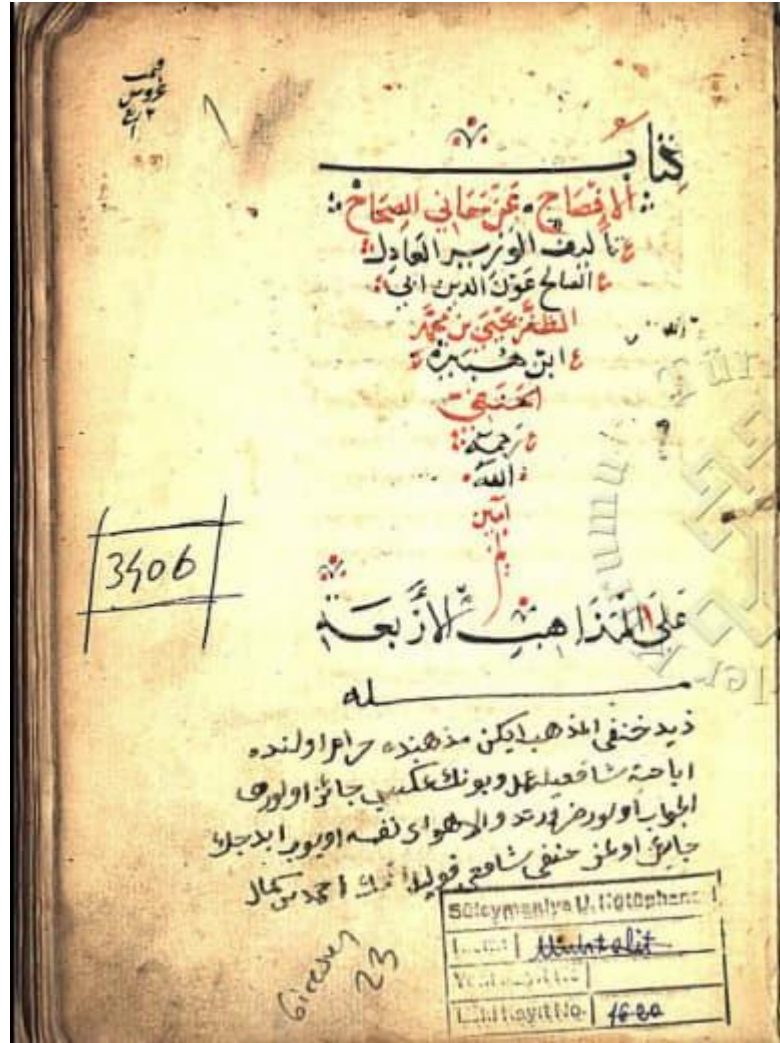 قيمت
غروش
كتاب
الإفصاح عن معاني الصحاح
تأليف الوزير العادل
الصالح عون الدين ابي
المظفر يحيى بن محمد
ابن هبيرة
الحنبلي
رحمه
الله
آمين
على المذاهب الأربعة
3406
مسئله
زيد حنفي المذهب ايكن مذهبنده حرام اولنده
اباحة شافعيله عمل وبونك عكسي جائز اولورمى
الجواب اولور ضرورتده والا هواى نفسه اويوب ايدجك
جايز اولمز حنفي شافعي احمد بن كمال
Süleymaniye U. Kütüphanesi
Muhtelit
Yeni Kayıt No
Eski Kayıt No. 1620
Giresun
23